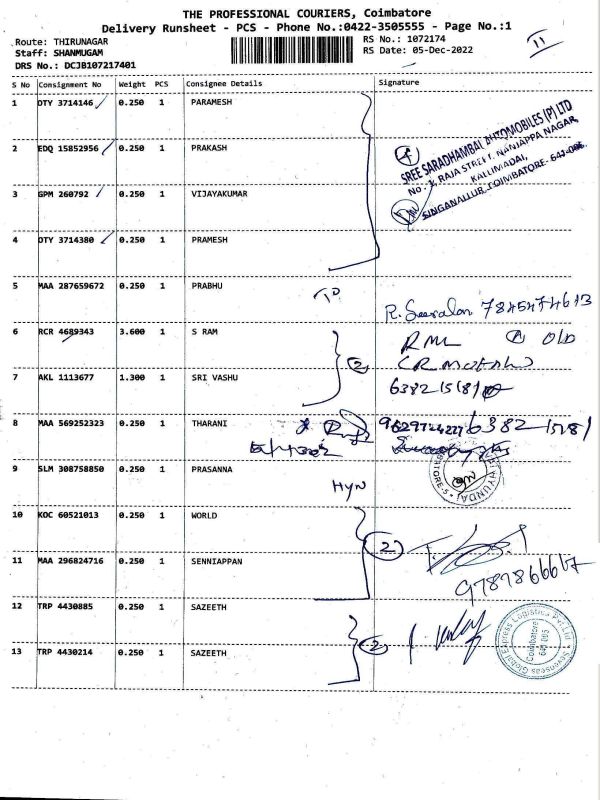 THE PROFESSIONAL COURIERS, Coimbatore
Delivery Runsheet - PCS - Phone No.:0422-3505555 - Page No.:1
Route: THIRUNAGAR
RS No.: 1072174
Staff: SHANMUGAM
RS Date: 05-Dec-2022
11
DRS No.: DCJB107217401
S No Consignment No Weight PCS Consignee Details Signature
1 OTY 3714146 0.250 1 PARAMESH
2 EDQ 15852956 0.250 1 PRAKASH
4
SREE SARADHAMBAL AUTOMOBILES (P) LTD
No. 1, RAJA STREET, NANJAPPA NAGAR,
KALLIMADAI,
SINGANALLUR, COIMBATORE- 641-005.
3 GPM 260792 0.250 1 VIJAYAKUMAR
4 OTY 3714380 0.250 1 PRAMESH
5 MAA 287659672 0.250 1 PRABHU
7845474613
6 RCR 4689343 3.600 1 S RAM
2
7 AKL 1113677 1.300 1 SRI VASHU
8 MAA 569252323 0.250 1 THARANI
9 SLM 308758850 0.250 1 PRASANNA
HYUNDAI
Hyn
10 KOC 60521013 0.250 1 WORLD
2
11 MAA 296824716 0.250 1 SENNIAPPAN
12 TRP 4430885 0.250 1 SAZEETH
2
Sevenseas Global Express Logistics Pvt.Ltd
Coimbatore
641 005
13 TRP 4430214 0.250 1 SAZEETH